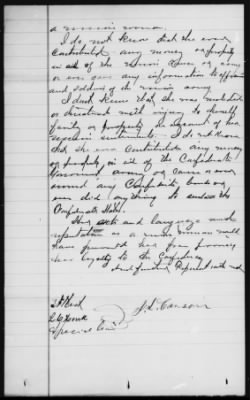 a union woman.
I do not know that she ever
contributed any money or property
in aid of the Union cause or army
or ever gave any information to officers
and soldiers of the union army
I don't know that she was molested
or threatened with injury to herself
family or property on account of her
union sentiments. I do not know
that she ever contributed any money
or property in aid of the Confederate
Government army or cause or ever
owned any Confederate bonds or
ever did anything to sustain the
Confederate States.
Her acts and language and
reputation as a union woman
have prevented her from proving
her loyalty to the Confederacy
And further deponent saith not
J. D. Carson
Special Com